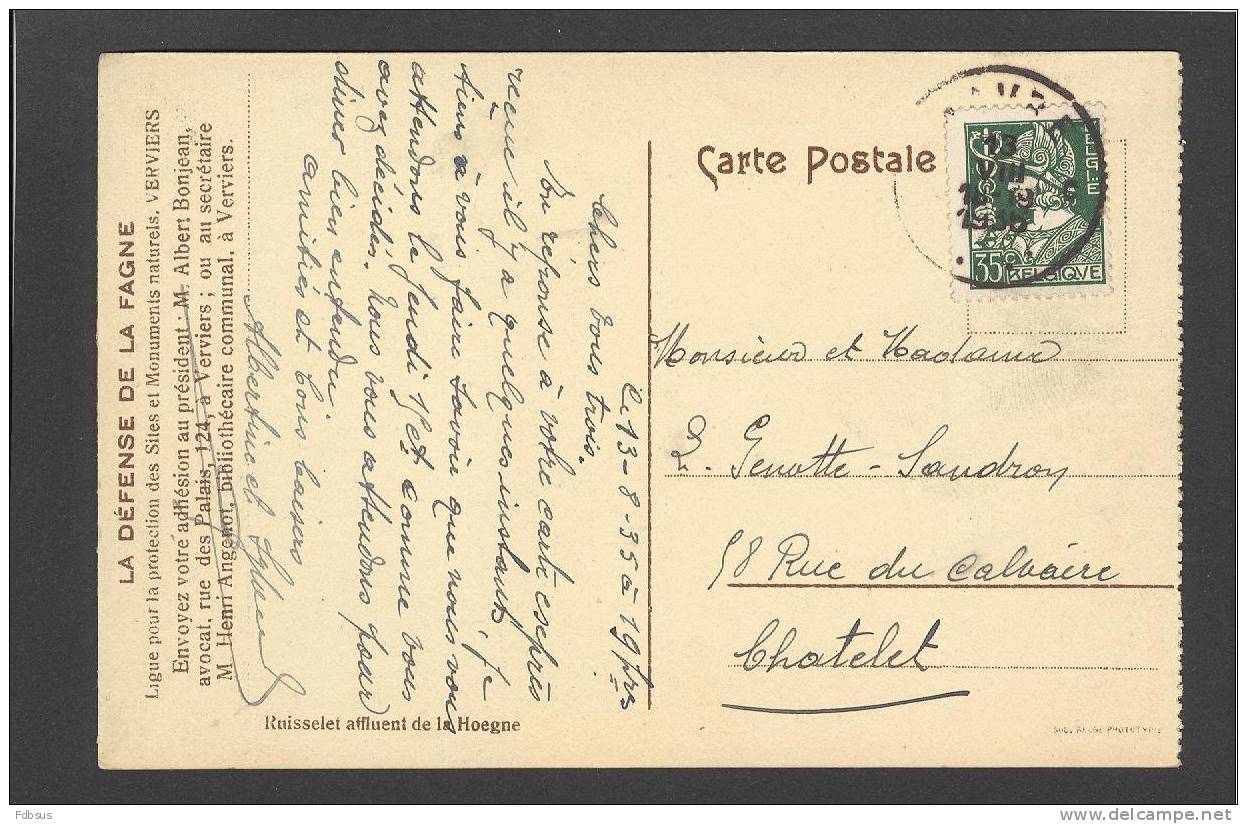 LA DÉFENSE DE LA FAGNE
Ligue pour la protection des Sites et Monuments naturels, VERVIERS
Envoyez votre adhésion au président : M. Albert Bonjean,
avocat, rue des Palais, 124, à Verviers ; ou au secrétaire
M Henri Angenot, bibliothécaire communal, à Verviers.
Le 13-8-35 à 19 hres
Chers vous trois.
En réponse à votre carte exprès
reçue il y a quelques instants, je
tiens à vous faire savoir que nous vous
attendons le jeudi 15 et comme vous
avez décidés. Nous vous attendons pour
diner bien entendu.
Amitiés et bons baisers
Albertine et
Ruisselet affluent de la Hoegne
Carte Postale
13
VIII
1935
35c
BELGIQUE
Monsieur et Madame
L. Genotte-Sandron
58 Rue du Calvaire
Chatelet
SOC. BELGE PHOTOTYPIE
Fdbsus
www.delcampe.net